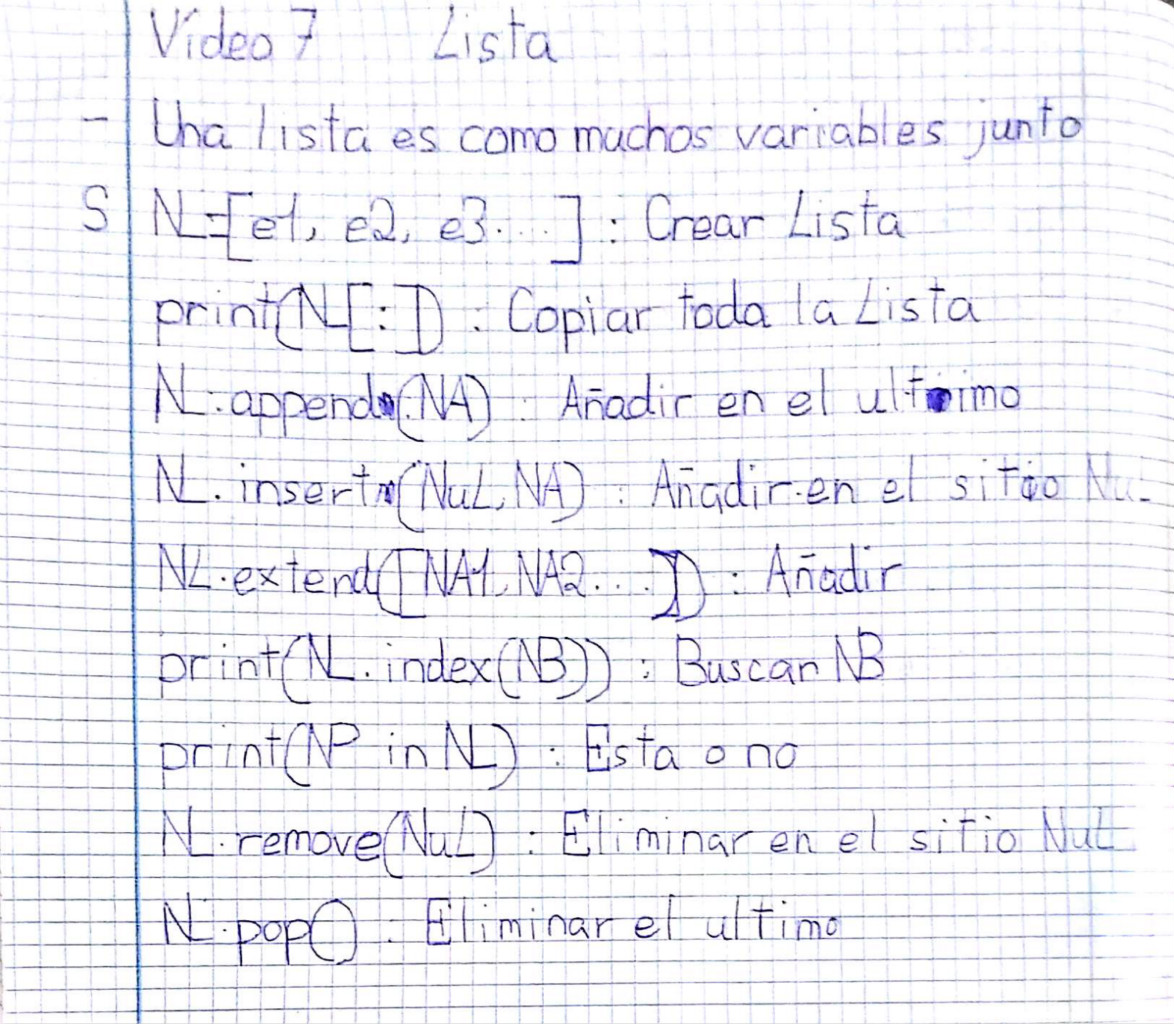 Video 7 Lista
- Una lista es como muchos variables junto
S NL=[e1, e2, e3....] : Crear Lista
print(NL[:]) : Copiar toda la Lista
NL.append(NA) : Añadir en el ultimo
NL.insert(NuL, NA) : Añadir en el sitio NuL
NL.extend([NA1, NA2...]) : Añadir
print(NL.index(NB)) : Buscar NB
print(NP in NL) : Esta o no
NL.remove(NuL) : Eliminar en el sitio NuL
NL.pop() : Eliminar el ultimo